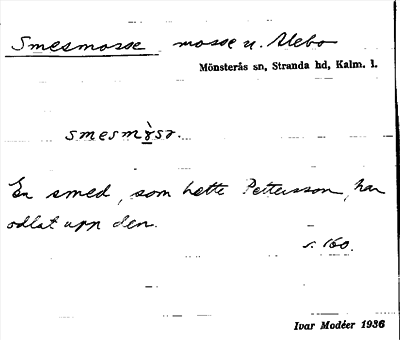 Smesmosse mosse u. Alebo
Mönsterås sn, Stranda hd, Kalm. l.
smesmòsə.
En smed, som hette Pettersson, har
odlat upp den.
s. 160.
Ivar Modéer 1936